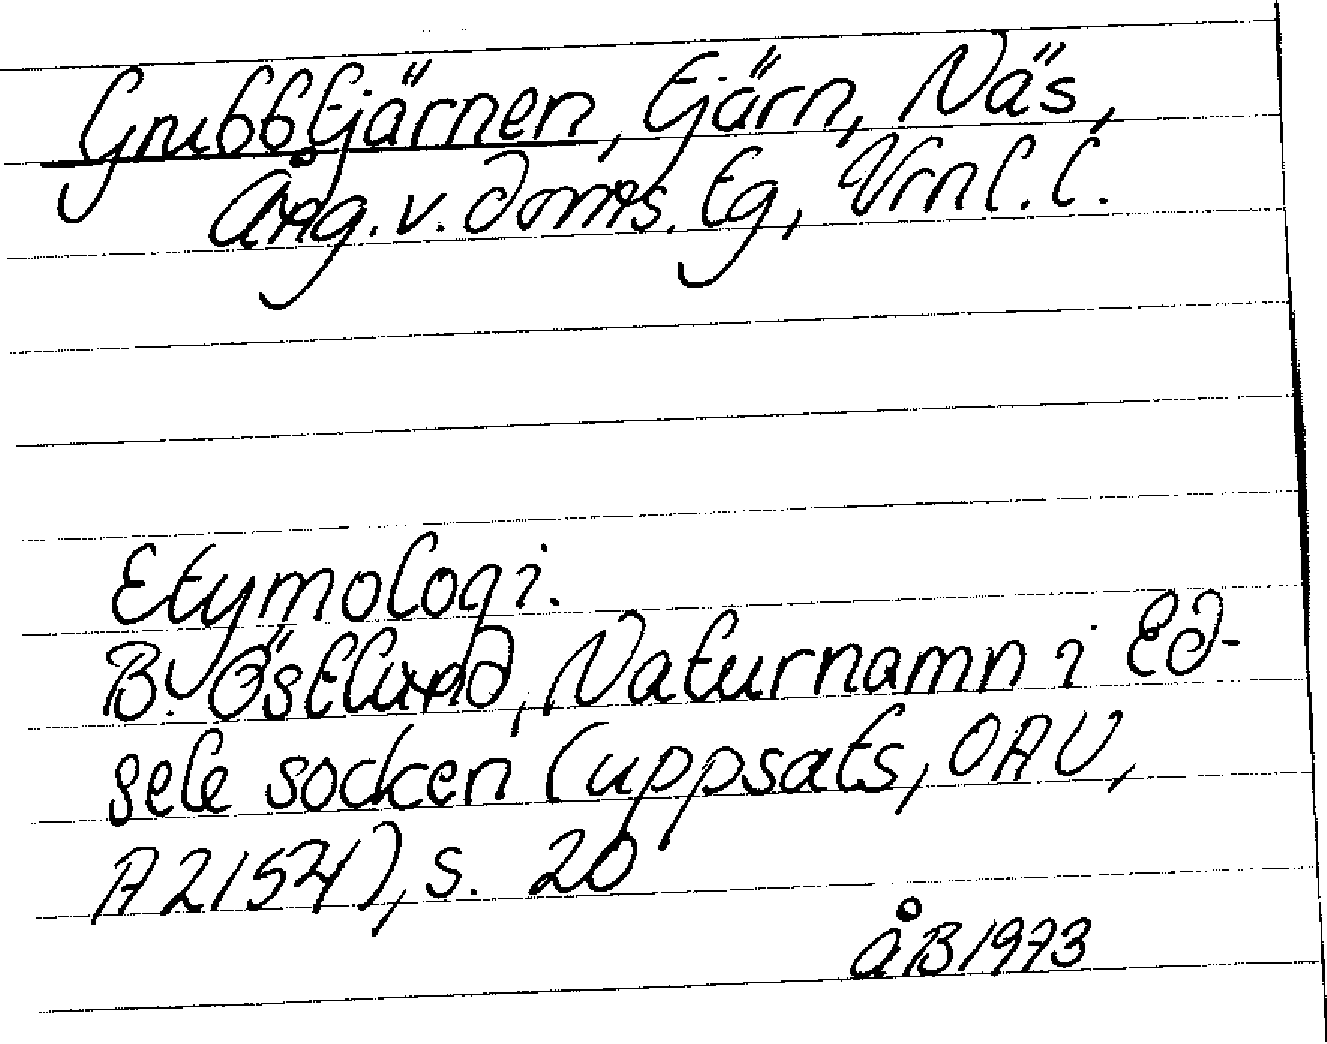 Grubbtjärnen, tjärn, Näs,
Ång.v.doms.tg, Vrnl.l.
Etymologi.
B. Östlund, Naturnamn i Ed-
sele socken (uppsats, OAU,
A 2154), s. 20
ÅB 1973